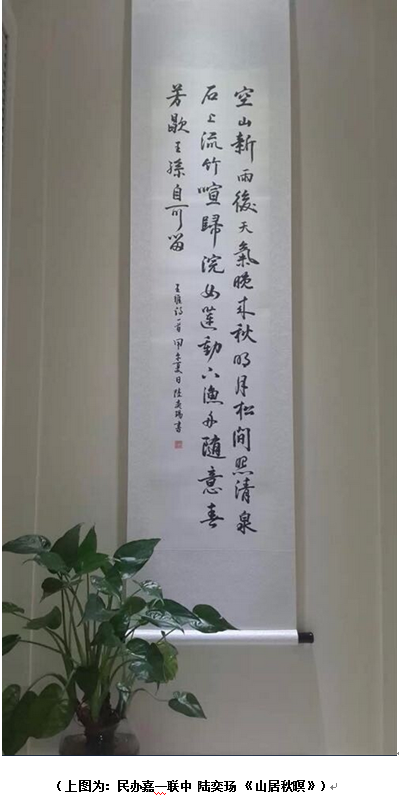 空山新雨後天氣晚来秋明月松间照清泉
石上流竹喧歸浣女蓮動下漁舟隨意春
芳歇王孫自可留
王維詩一首 甲午夏日 陸奕瑒書
（上图为：民办嘉一联中 陆奕玚 《山居秋暝》）